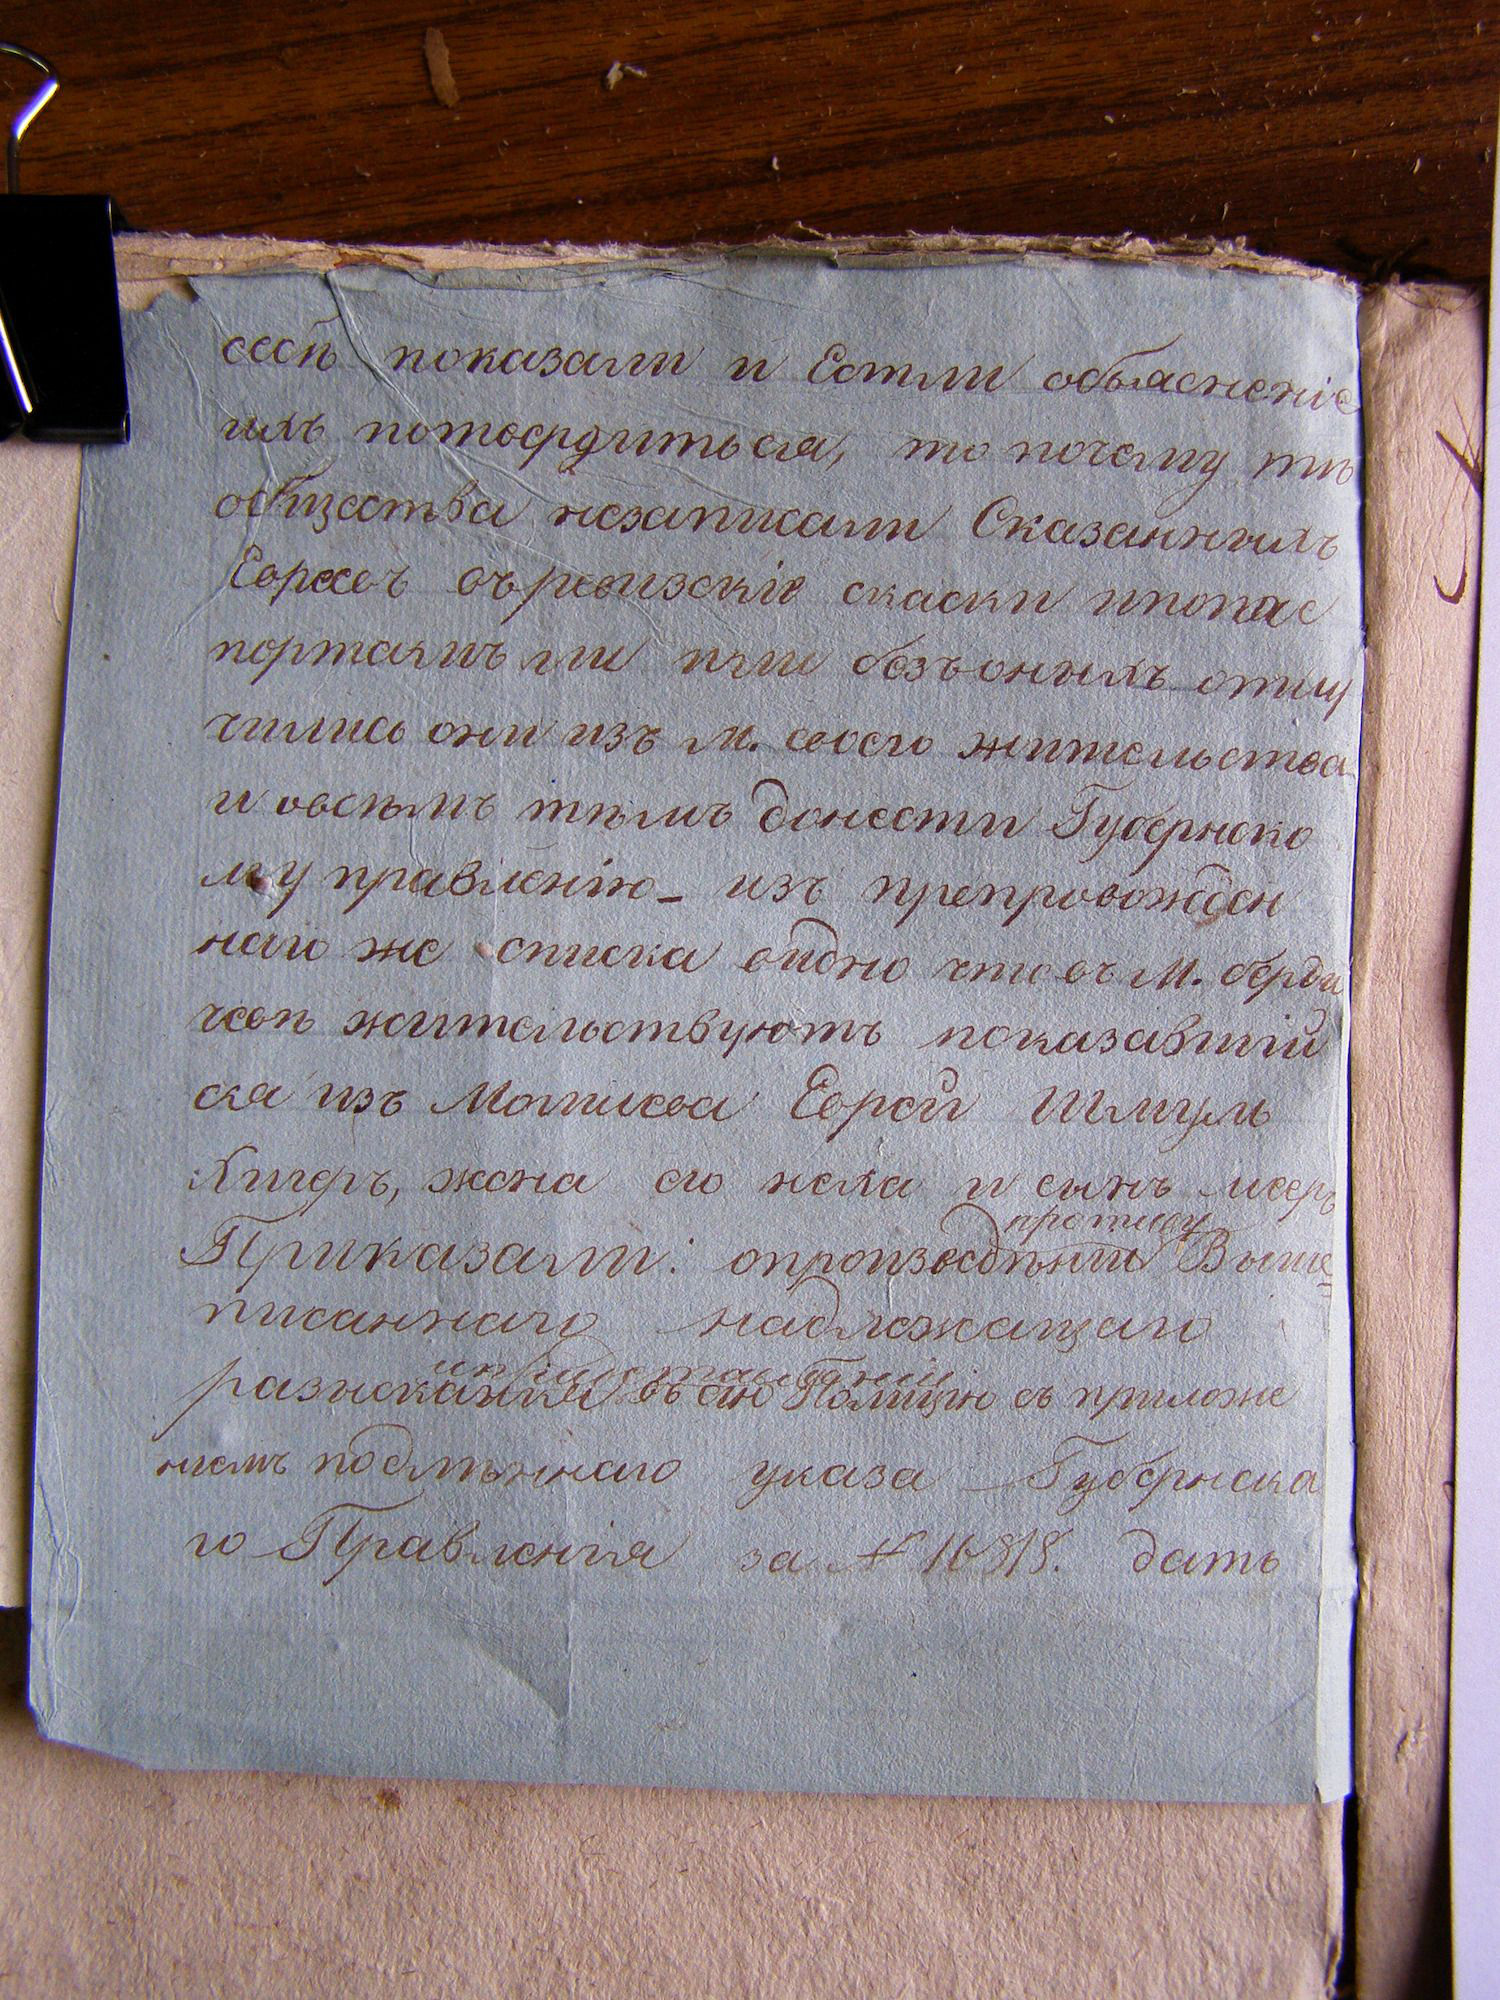 себѣ показали и Естли объясненіе
ихъ потвердиться, то почему тѣ
общества незаписали Сказанныхъ
Евреевъ въревизскіе скаски ипопас
портамъ ли или безъоныхъ отлу
чились они изъ м. своего жительства
и овсемъ тѣмъ донести Губернско
му правленію_ изъ препровожден
наго же списка видно чтовъ М. берди
чевѣ жительствуютъ показавшій
ся изъ Махновка Еврей Шмуль
жена его неха и сынъ
противу
Приказали: опроизведѣніи Выше
писаннаго надлежащаго
разысканія въ сію Полицію съ приложе
ніемъ подлѣннаго указа Губернска
го Правленія за № 16818. дать